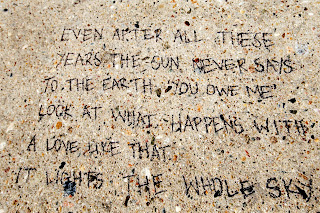 EVEN AFTER ALL THESE
YEARS THE SUN NEVER SAYS
TO THE EARTH "YOU OWE ME"
LOOK AT WHAT HAPPENS WITH
A LOVE LIKE THAT
IT LIGHTS THE WHOLE SKY